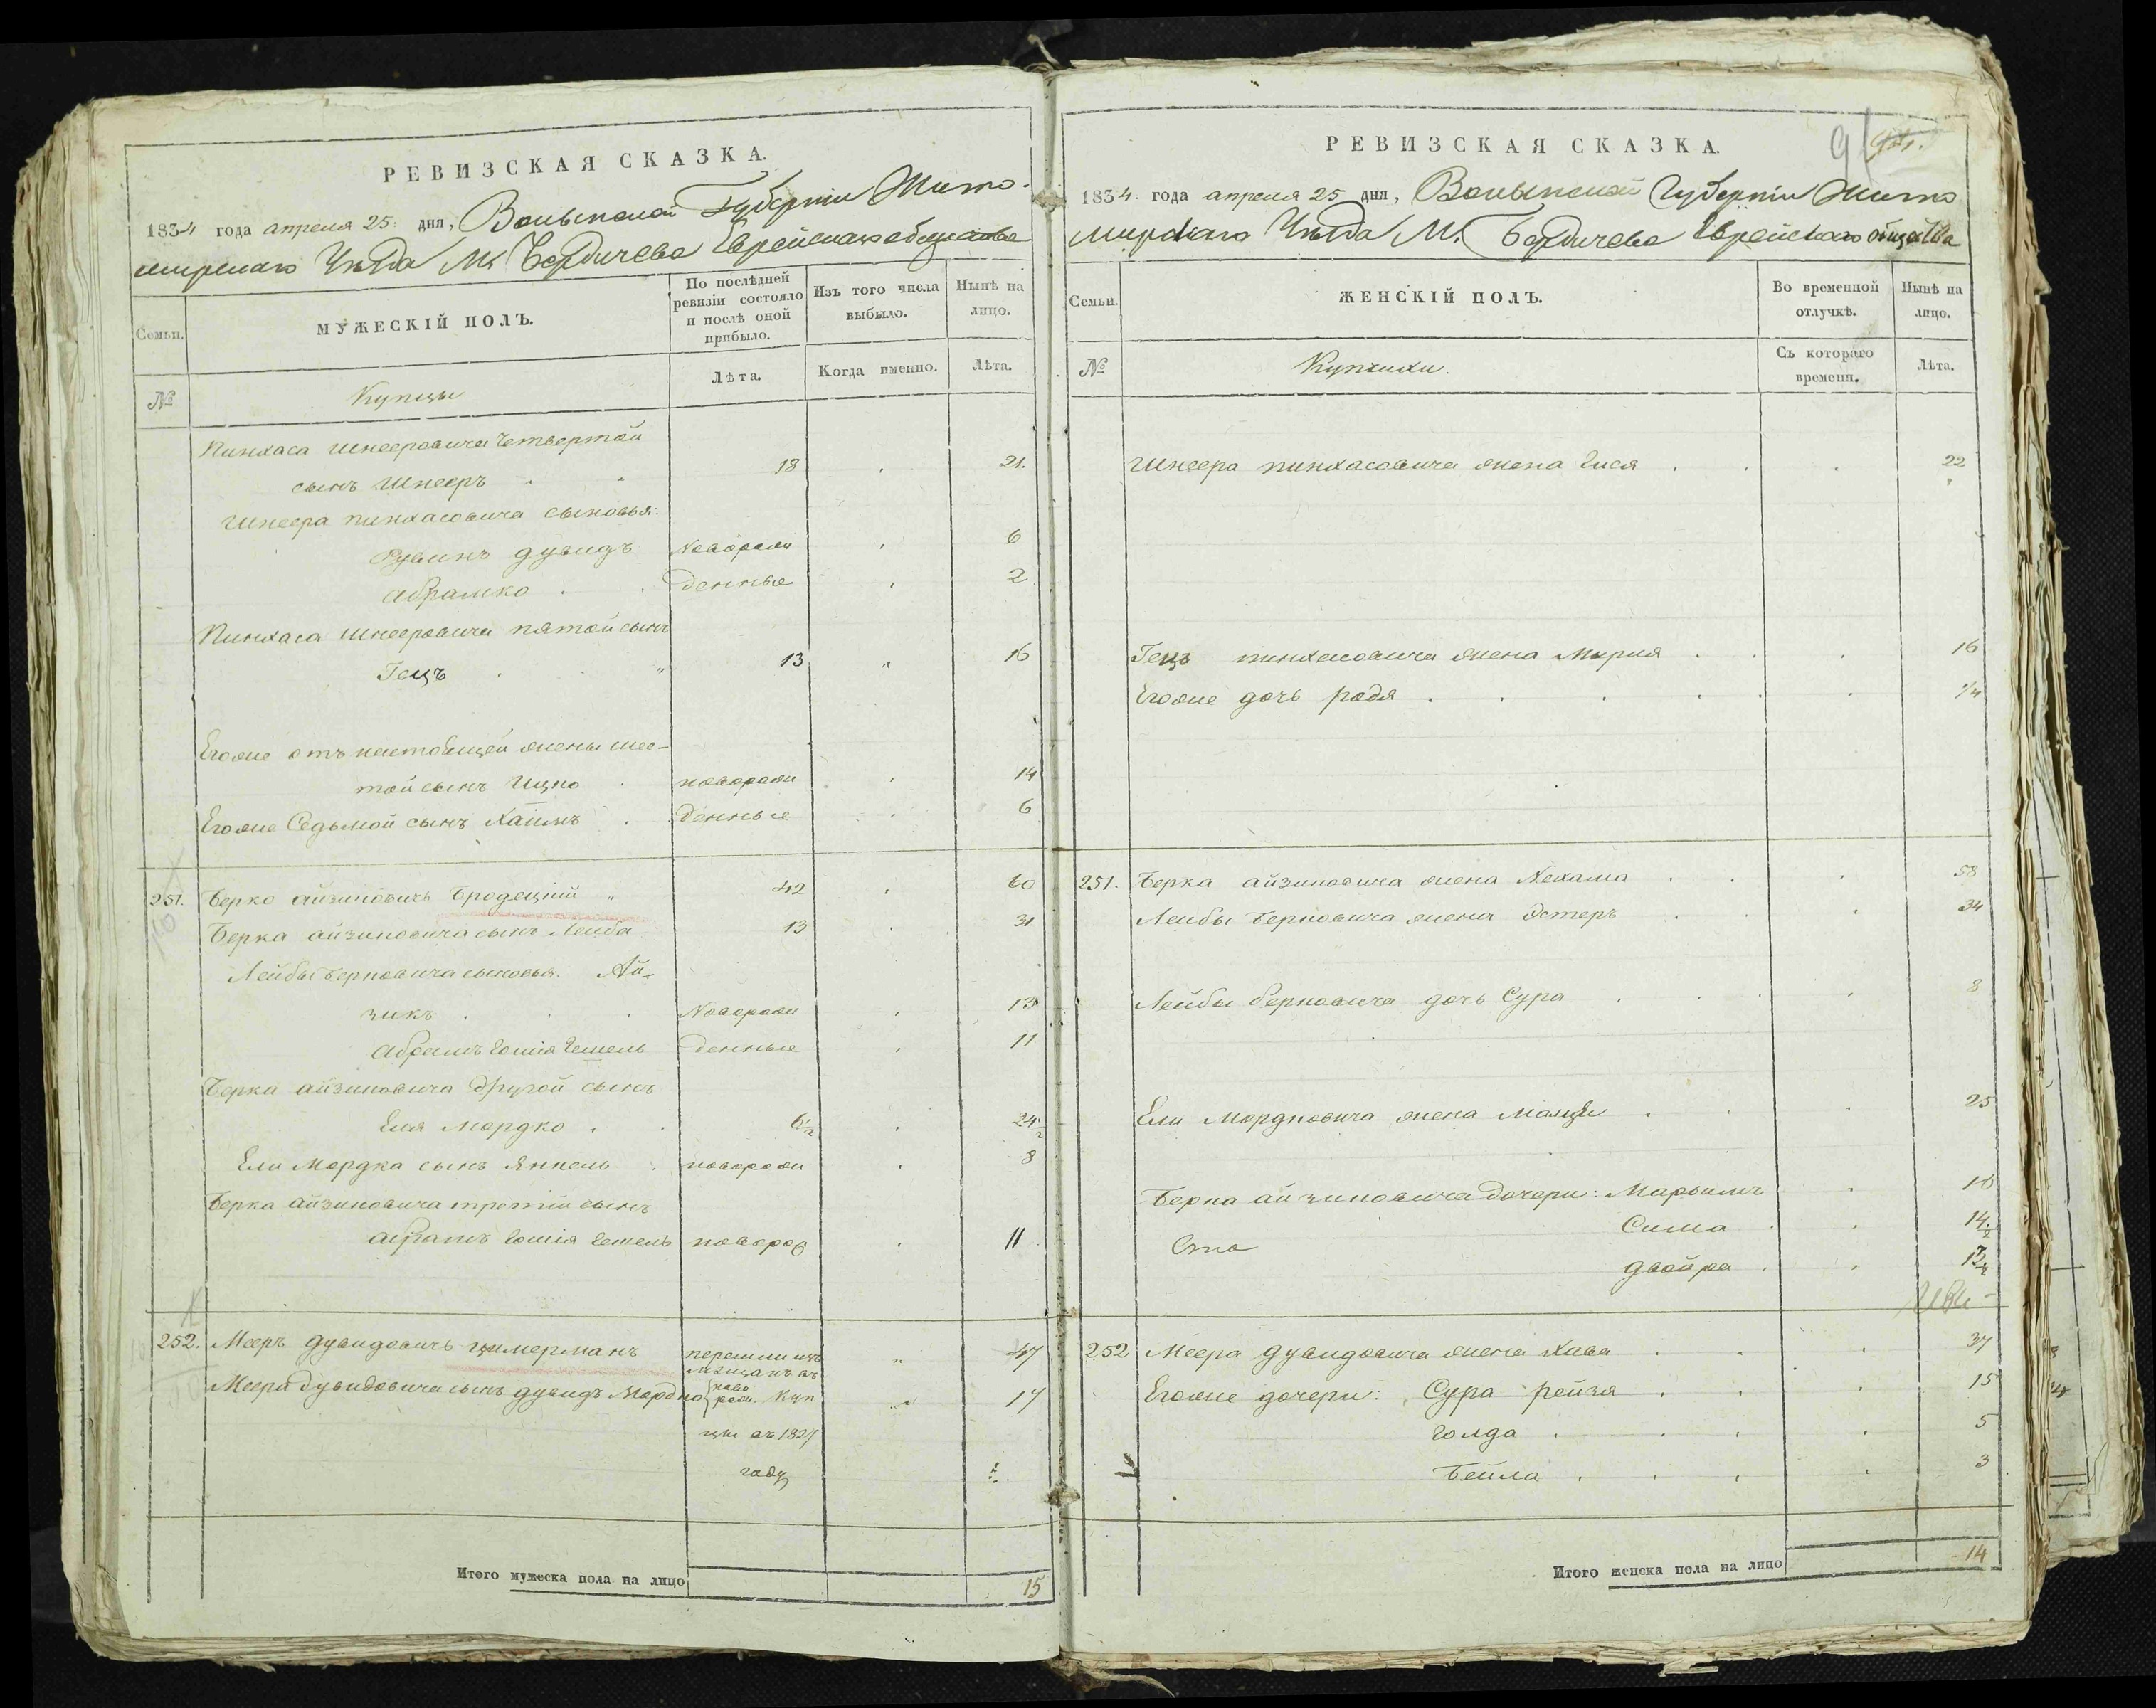 РЕВИЗСКАЯ СКАЗКА.
1834 года апреля 25: дня, Волынской Губернiи Жито-
мирскаго Уѣзда М: Бердичева Еврейскаго общества
Семьи.
МУЖЕСКIЙ ПОЛЪ.
По послѣдней ревизiи состояло и послѣ оной прибыло.
Изъ того числа выбыло.
Нынѣ на лицо.
№
Купцы
Лѣта.
Когда именно.
Лѣта.
Пинхаса Шнееровича четвертой
сынъ Шнееръ 18 21.
Шнеера пинхасовича сыновья:
Рувинъ дувидъ Новорож 6
абрамко денные 2
Пинхаса Шнееровича пятой сынъ
Гецъ 13 16
Егоже отъ настоящей жены шес-
той сынъ Ицко новорож 14
Егоже Седьмой сынъ Хаимъ денные 6
251. Берко айзиковичъ Бродецкiй 42 60
Берка айзиковича сынъ Лейба 13 31
Лейбы берковича сыновья: Ай-
зикъ Новорож 13
абрамъ Гошiя Гешель денные 11
Берка айзиковича другой сынъ
Еля Мордко 6½ 24½
Ели Мордка сынъ Янкель новорож 8
Берка айзиковича третiй сынъ
абрамъ Гошiя Гешель новорож 11
252. Мееръ дувидовичъ цимерманъ перешли изъ мѣщанъ въ 47
Меера дувидовича сынъ дувидъ Мордко новорож. куп 17
цы въ 1827
году
Итого мужеска пола на лицо 15
РЕВИЗСКАЯ СКАЗКА.
91
1834. года апреля 25 дня, Волынской Губернiи Жито
мирскаго Уѣзда М. Бердичева Еврейскаго общества
Семьи.
ЖЕНСКIЙ ПОЛЪ.
Во временной отлучкѣ.
Нынѣ на лицо.
№
Купчихи.
Съ котораго времени.
Лѣта.
Шнеера пинхасовича жена Гися 22
Гецъ пинхасовича жена Мирия 16
Егоже дочь родя
251. Берка айзиковича жена Нехама 58
Лейбы берковича жена Эстеръ 34
Лейбы берковича дочь Сура 8
Ели Мордковича жена Малця 25
Берка айзиковича дочери: Марьимъ 16
Сима 14½
двойра
252 Меера дувидовича жена Хава 37
Егоже дочери: Сура рейзя 15
Голда 5
Бейла 3
Итого женска пола на лицо 14